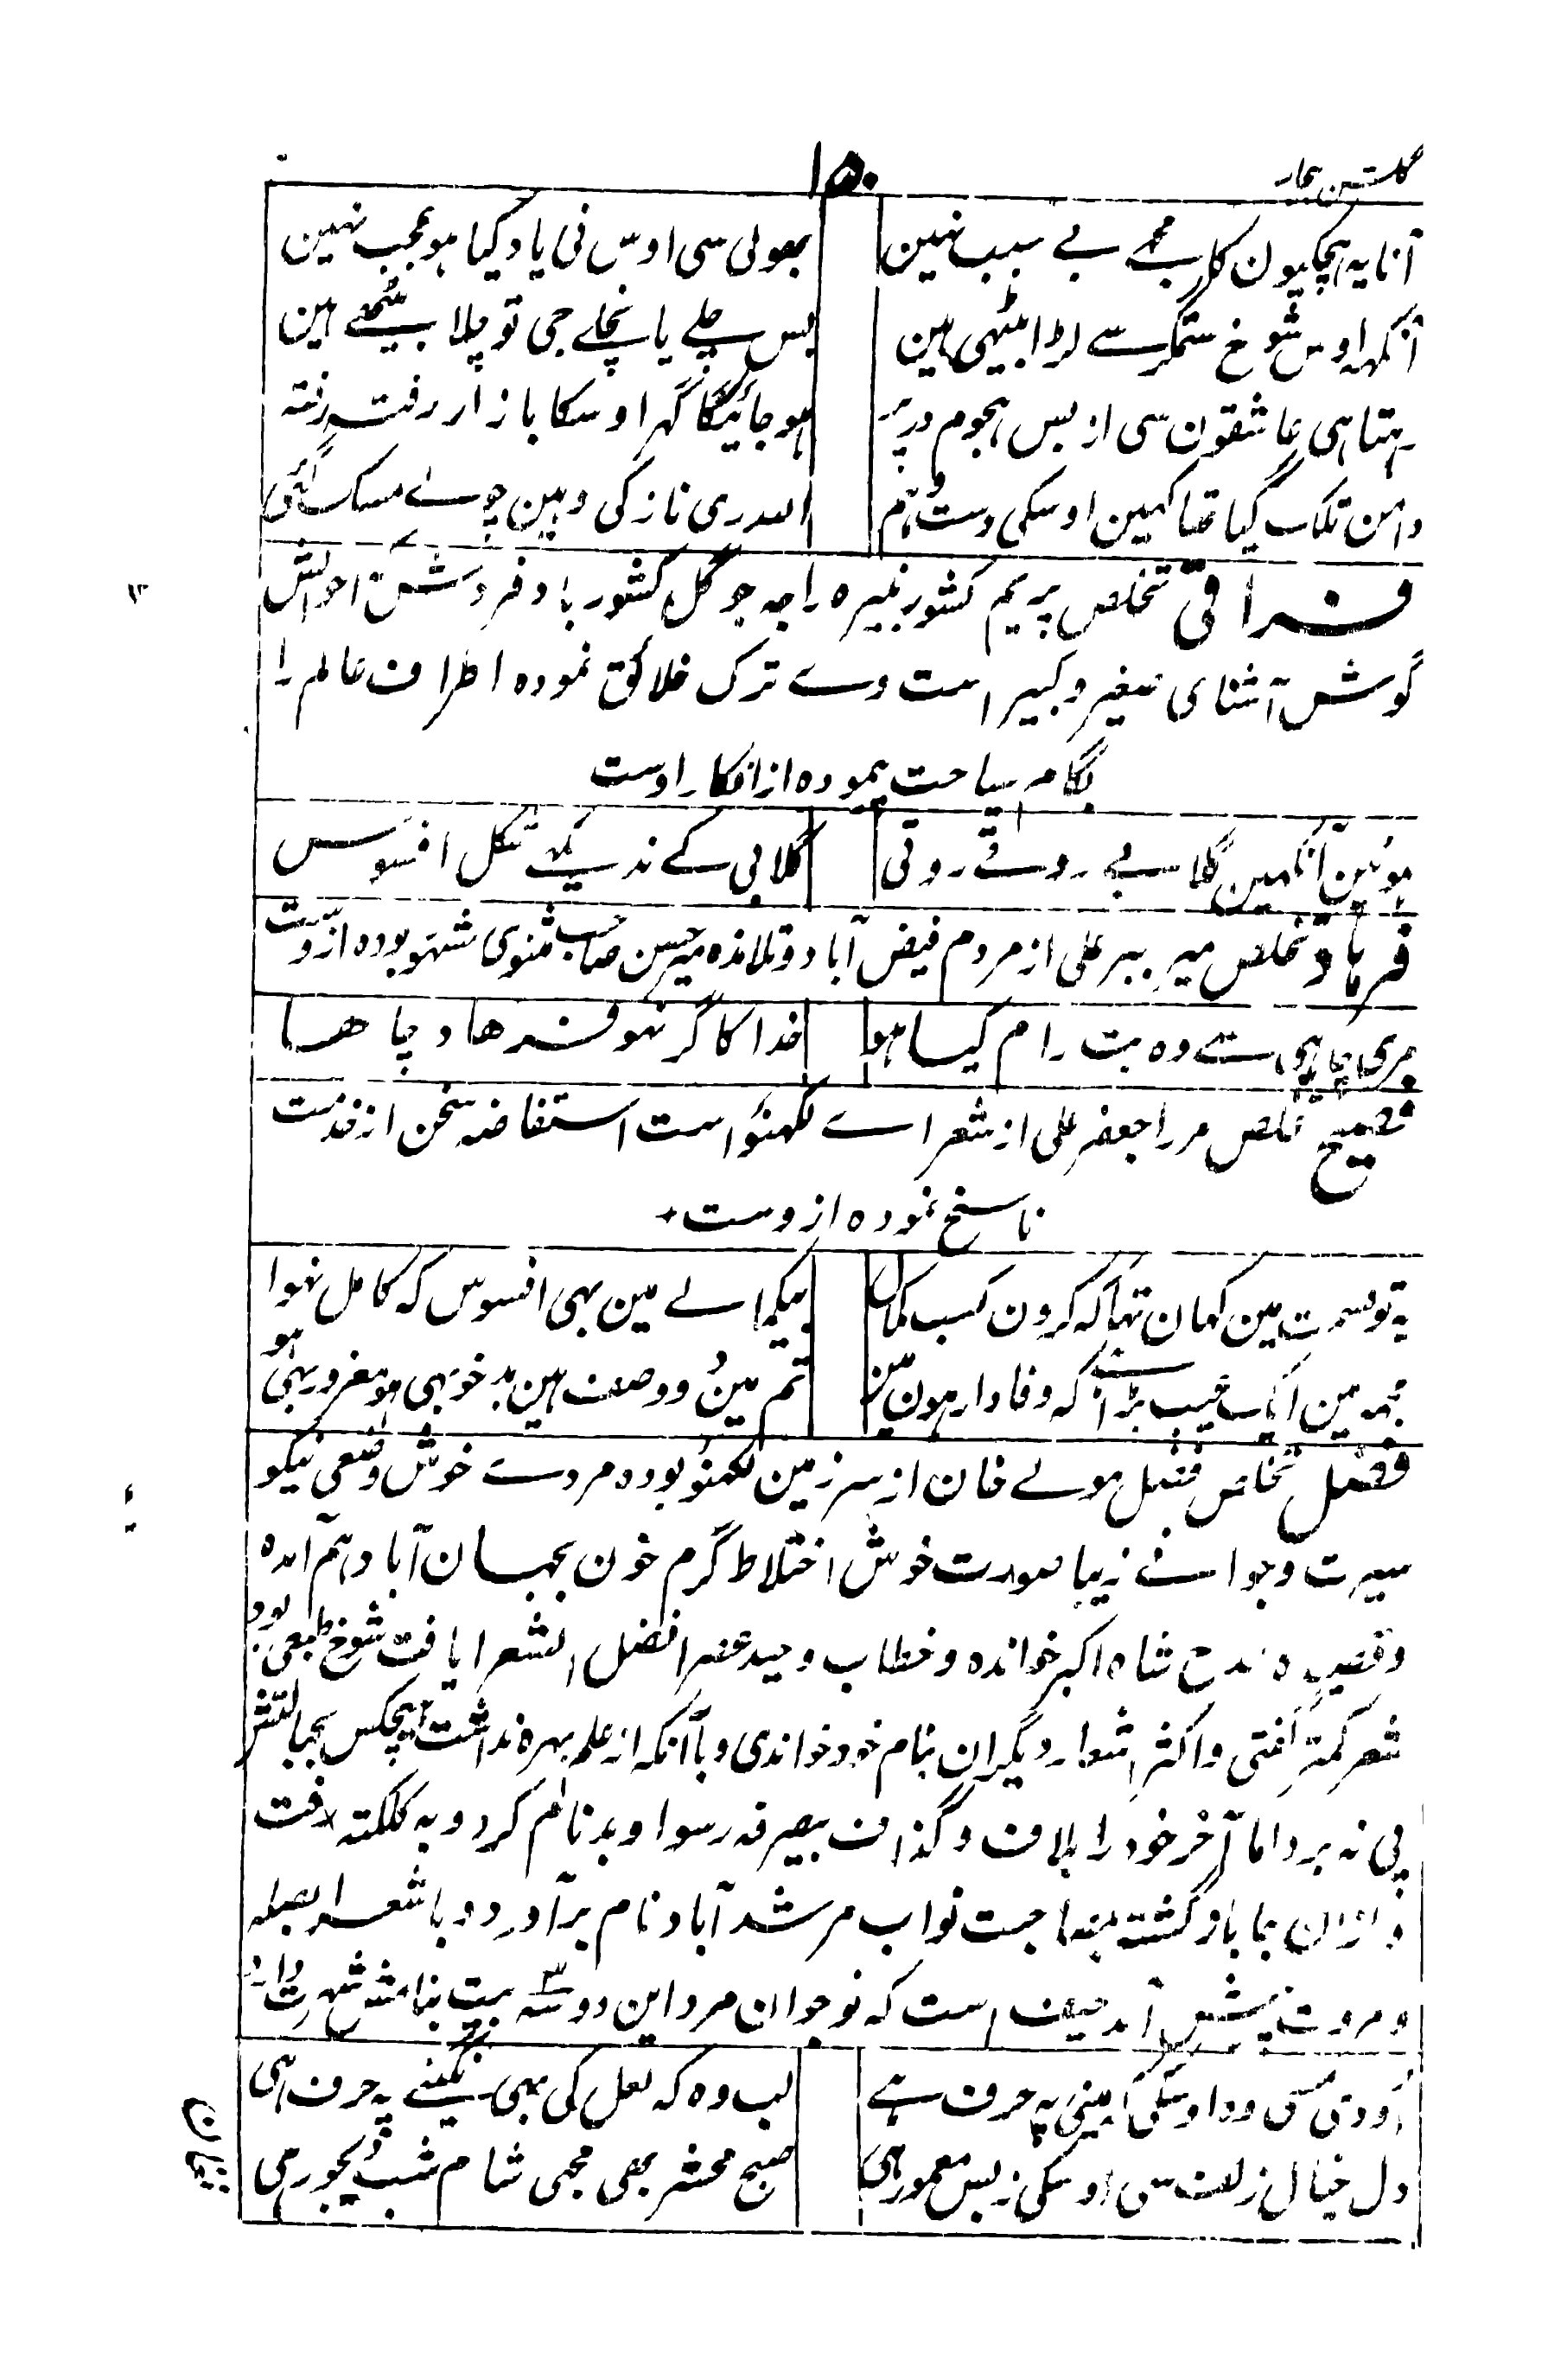 گلشن بیخار
۱۵۰
آنا یہ ہچکیون کا مجھے بے سبب نہین
بھولی سی اوس نی یاد کیا ہو عجب نہین
آنکہہ اوس شوخ ستمگر سے لڑا بیٹھی ہین
بس چلے یا نچلے جی تو چلا بیٹھے ہین
رہتا ہی عاشقون سی از بس ہجوم در پر
ہو جائیگا گہر اوسکا بازار رفتہ رفتہ
دامن تلک گیا تھا کہین اوسکی دست وہم
اللہ ری نازکی وہین چولے مسک گئی
فراقی تخلص پریم کشور نبیرہ راجہ جوگل کشور باد فروش کہ احوالش
گوش آشنای صغیر و کبیر است وے ترک خلائق نمودہ اطراف عالم را
بگام سیاحت پیمودہ از افکار اوست
ہوئین آنکھین گلابی روتے روتی
گلابی کے نہ دیکھے شکل افسوس
فرہاد تخلص میر ببر علی از مردم فیض آباد و تلامذہ میر حسن صاحب مثنوی مشہور بودہ ازوست
مری چاہی سے وہ بت رام کیسا ہو
خدا کا گر نہو فرھاد چاھا
فصیح تخلص مرزا جعفر علی از شعراے لکہنؤ است استفاضہ سخن از خدمت
ناسخ نمودہ ازوست
یہ تو قسمت مین کہان تہا کہ کرون کسب کمال
بیکمالے مین بہی افسوس کہ کامل نہوا
مجہہ مین ایک عیب بڑا ہے کہ وفادار ہون مین
تم مین دو وصف ہین بدخو بہی ہو مغرور بہی ہو
فضل تخلص فضل مولے خان از سرزمین لکہنؤ بودہ مردے خوش وضعی نیکو
سیرت و جوانے زیبا صورت خوش اختلاط گرم خون بجہان آباد ہم آمدہ
و قصیدہ مدح شاہ اکبر خواندہ و خطاب وحید عصر افضل الشعرا یافت شوخ طبعی بود
شعر کمتر گفتی و اکثر اشعار دیگران بنام خود خواندی و با آنکہ از علم بہرہ نداشت ہیچکس بجہالتش
پی نہ برد اما آخر خود را بلاف و گذاف بیصرفہ رسوا و بدنام کرد و بہ کلکتہ رفت
و ازان بجا بازگشتہ بمصاحبت نواب مرشد آباد نام برآورد و با شعرا بصلہ
و مروت پیش آمد حیف است کہ نوجوان مرد این دو سہ بیت بنامش شہرت دارد
اودی مسی وہ اوسکی کہ مینی پہ حرف ہے
لب وہ کہ لعل کی بہی نگینے پہ حرف ہی
دل خیال زلف سی اوسکی زبس معمور ہی
صبح محشر بھی مجہی شام شب دیجور ہی